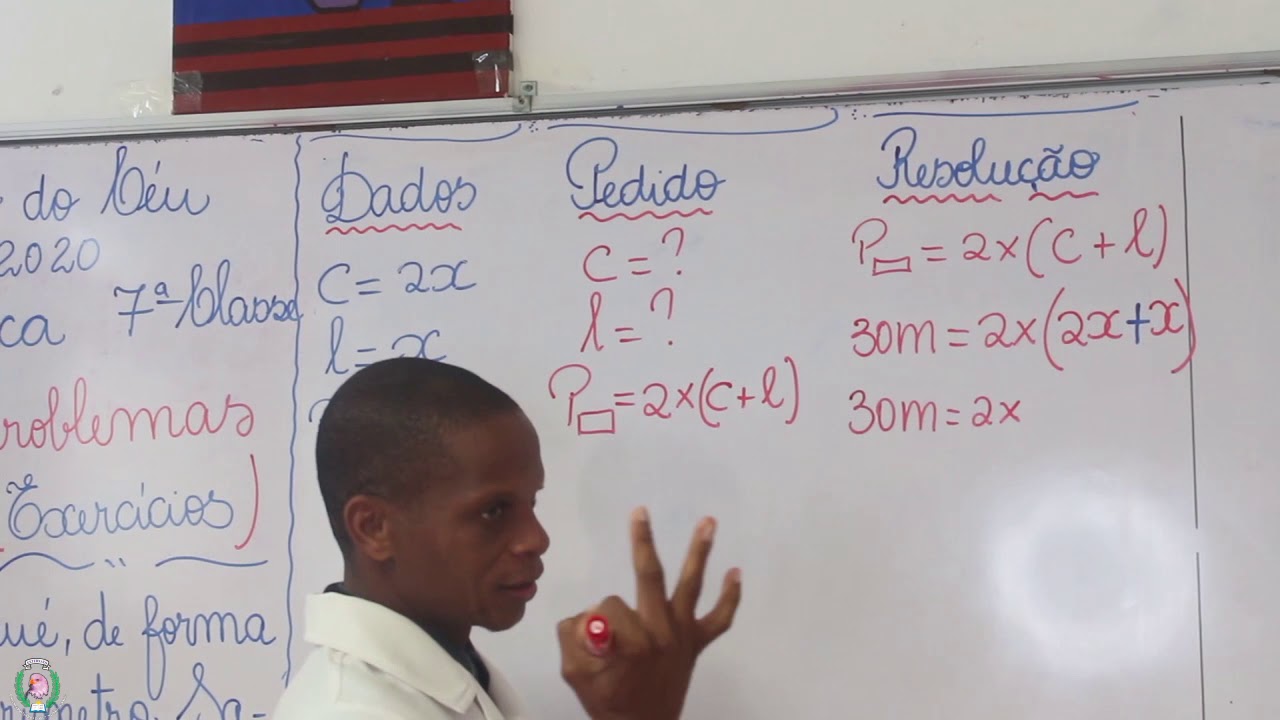 do Céu
2020
ca 7ª Classe
roblemas
Exercícios)
ué, de forma
Sa-
Dados
C = 2x
l = x
Pedido
C = ?
l = ?
P▭ = 2×(C + l)
Resolução
P▭ = 2×(C + l)
30m = 2×(2x+x)
30m = 2×